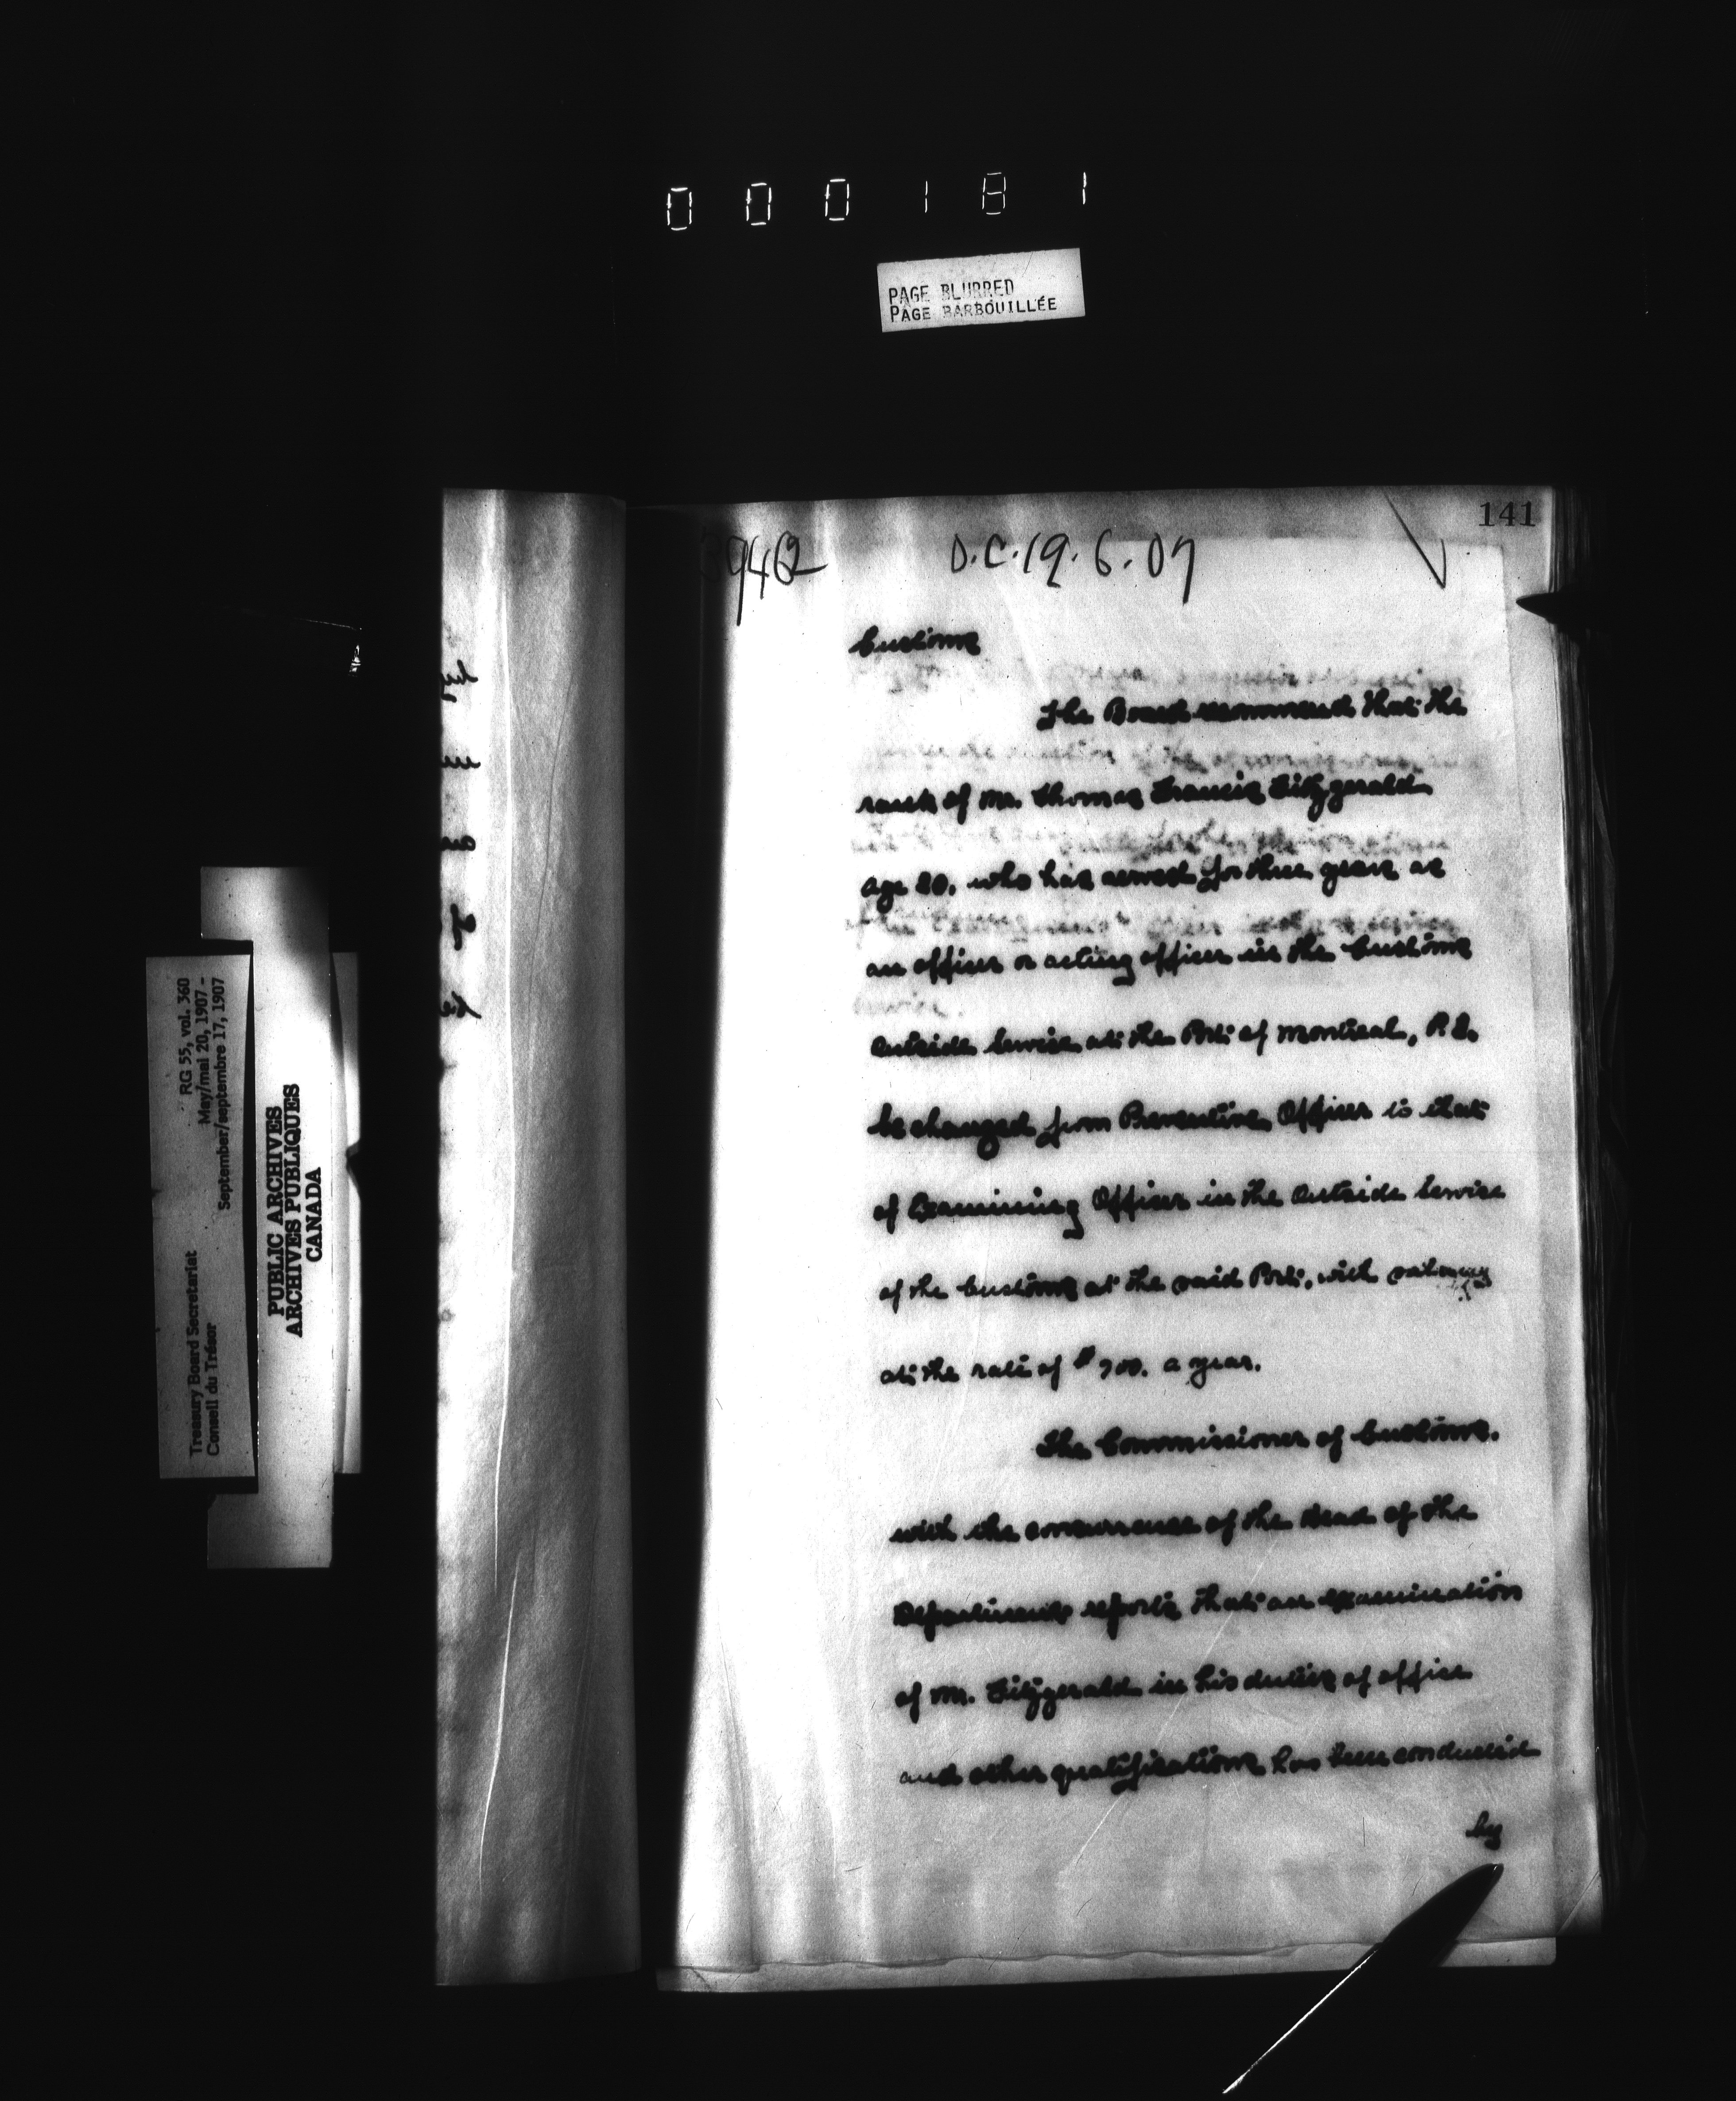 000181
PAGE BLURRED
PAGE BARBOUILLÉE
141
3942 O.C. 19.6.07
Customs
The Board recommend that the
rank of Mr. Thomas Francis Fitzgerald
age 20, who has served for three years as
an officer or acting officer in the Customs
Outside Service at the Port of Montreal, P.Q.
be changed from Preventive Officer to that
of Examining Officer in the Outside Service
of the Customs at the said Port, with salary
at the rate of $700. a year.
The Commissioner of Customs.
with the concurrence of the Head of the
Department reports that an examination
of Mr. Fitzgerald in his duties of office
and other qualifications has been conducted
by
Treasury Board Secretariat
Conseil du Trésor
RG 55, vol. 360
May/mai 20, 1907 -
September/septembre 17, 1907
PUBLIC ARCHIVES
ARCHIVES PUBLIQUES
CANADA